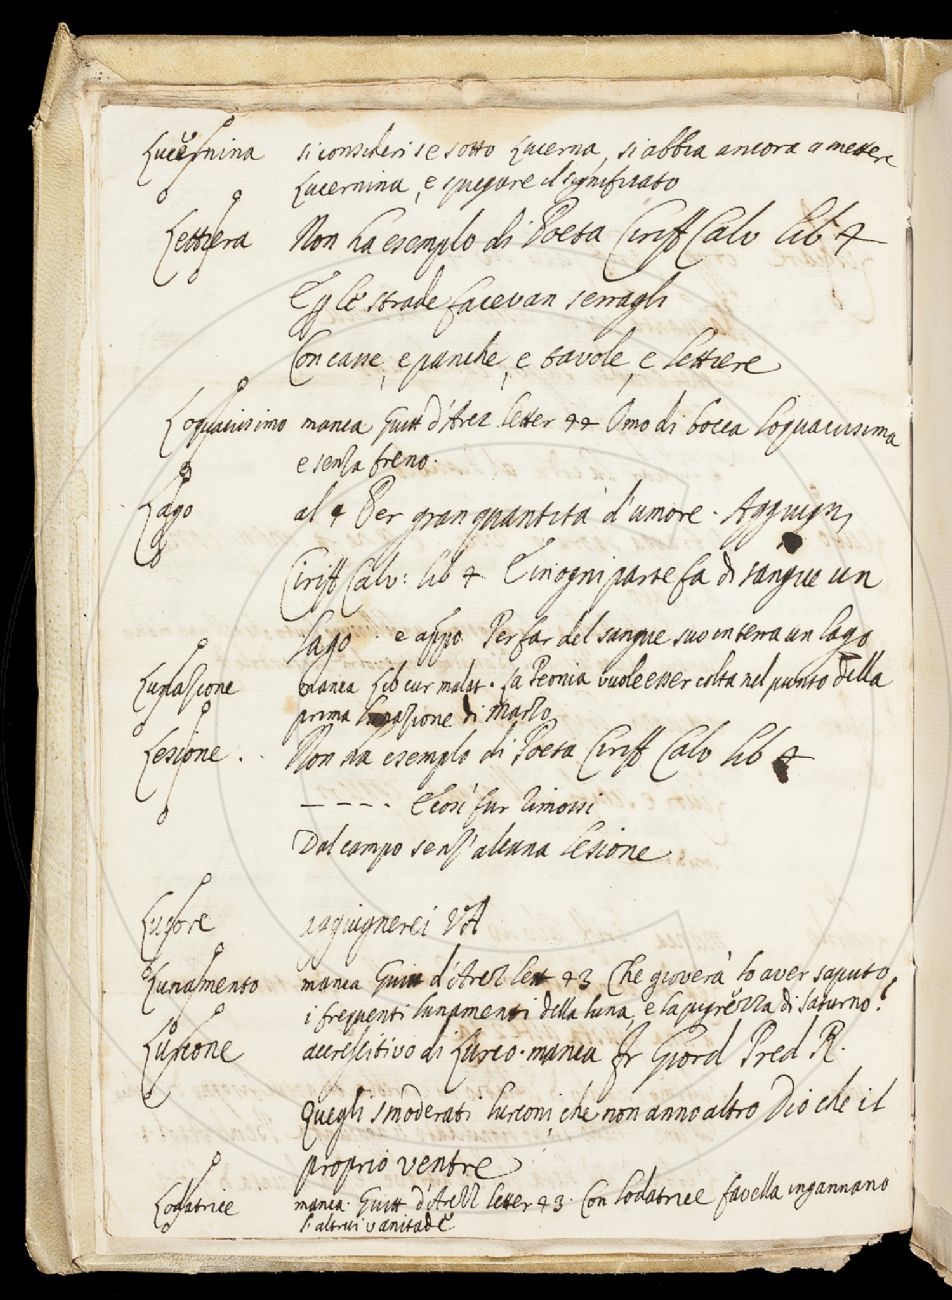 Lucernina si consideri se sotto Lucerna, si abbia ancora a mettere
Lucernina, e spiegare il significato
Lettiera Non ha esemplo di Poeta Ciriff Calv lib 4
E p le strade facevan serragli
Con casse, e panche, e tavole, e lettiere
Loquacissimo manca Guitt d'Arez letter 44 Omo di bocca loquacissima
e senza freno.
Lago al § Per gran quantità d'umore. Aggiugn
Ciriff Calv: lib 4 E in ogni parte fa di sangue un
lago e appo Per far del sangue suo in terra un lago
Lunazione manca Lib cur malat. La Peonia vuole esser colta nel punto della
prima lunazione di Marzo
Lesione .. Non ha esemplo di Poeta Ciriff Calv lib 4
- - - - E così fur rimossi
Dal campo senz' alcuna lesione
aggiugnerei VA
Lunamento manca Guitt d'Arez lett 43 Che gioverà lo aver saputo
i frequenti lunamenti della luna, e la pigrezza di Saturno?
Lurcone accrescitivo di Lurco. manca Fr Giord Pred R.
Quegli smoderati lurconi, che non anno altro Dio che il
proprio ventre
Lodatrice manca. Guitt d'Arez letter 43. Con lodatrice favella ingannano
l'altrui vanitade